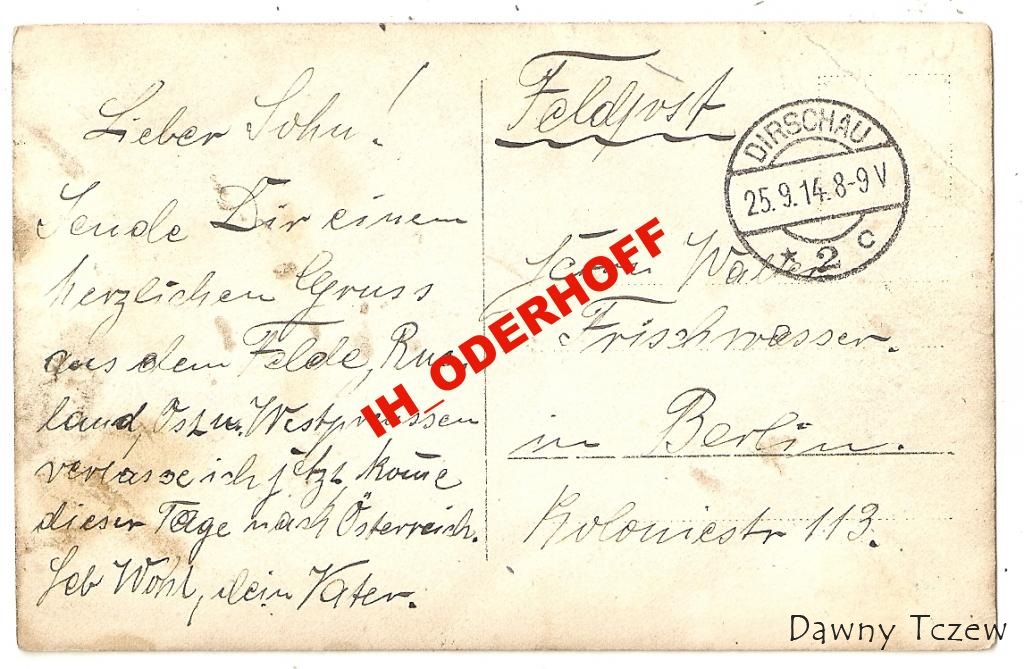 Lieber Sohn!
Sende Dir einen
herzlichen Gruss
aus dem Felde, Rus
land, Ost u. Westpreussen
verlasse ich jetzt, kome
dieser Tage nach Österreich.
Leb Wohl, dein Vater.
Feldpost
DIRSCHAU
25.9.14.8-9 V
* 2 c
Herrn Walter
Frischwasser.
in Berlin.
Koloniestr 113.
IH_ODERHOFF
Dawny Tczew